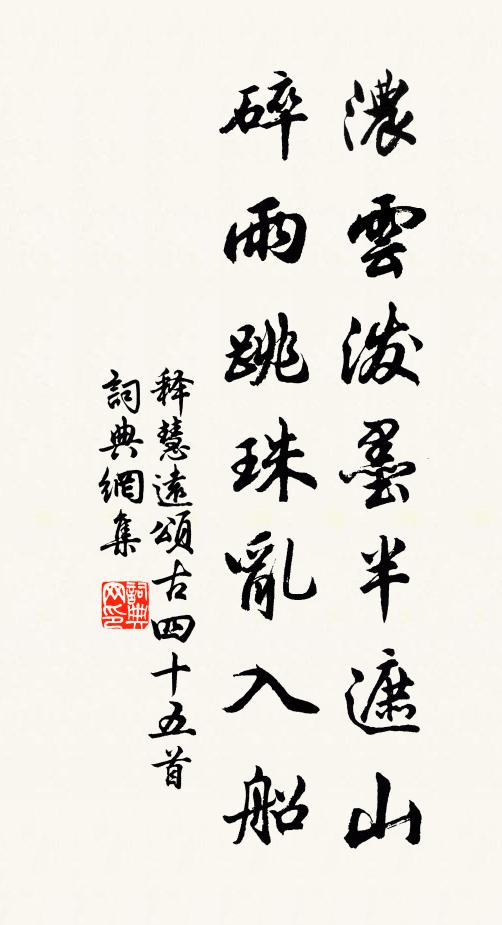 濃雲潑墨半遮山
碎雨跳珠亂入船
释慧遠頌古四十五首
詞典網集
詞典网印